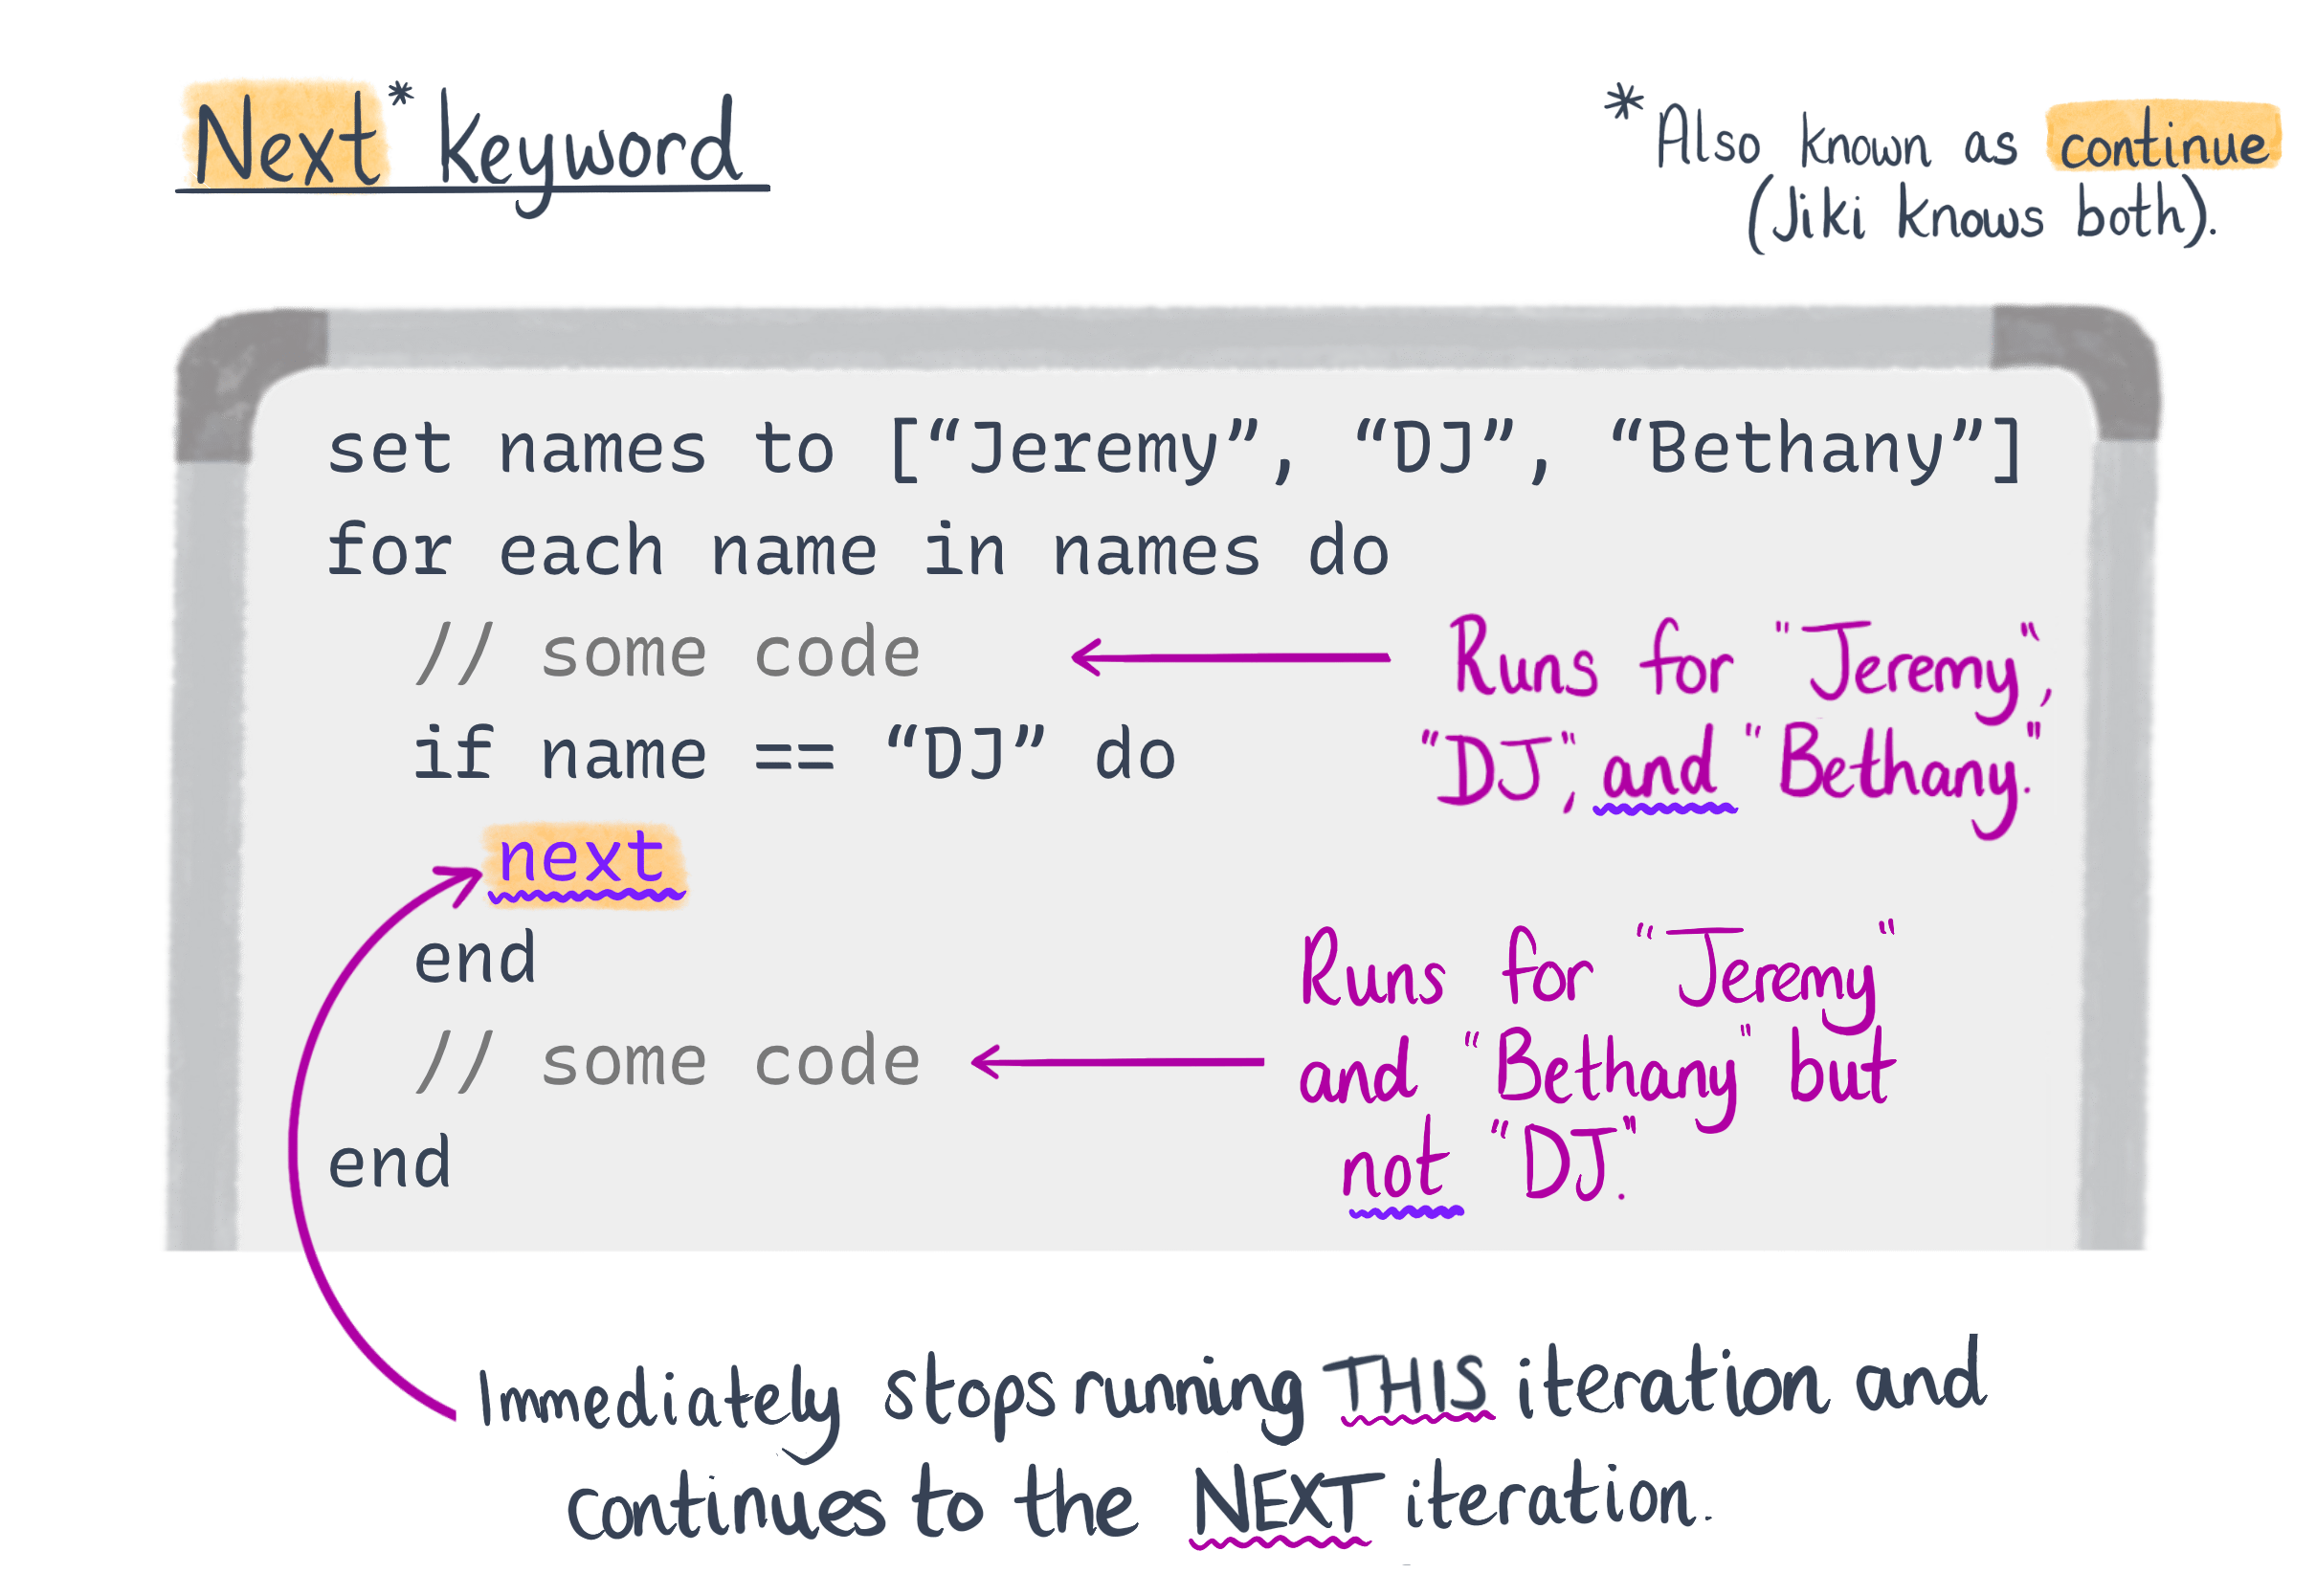 Next* keyword
*Also known as continue
(Jiki knows both).
set names to [“Jeremy”, “DJ”, “Bethany”]
for each name in names do
// some code
Runs for "Jeremy",
"DJ", and "Bethany."
if name == “DJ” do
next
end
// some code
end
Runs for "Jeremy"
and "Bethany" but
not "DJ."
Immediately stops running THIS iteration and
continues to the NEXT iteration.